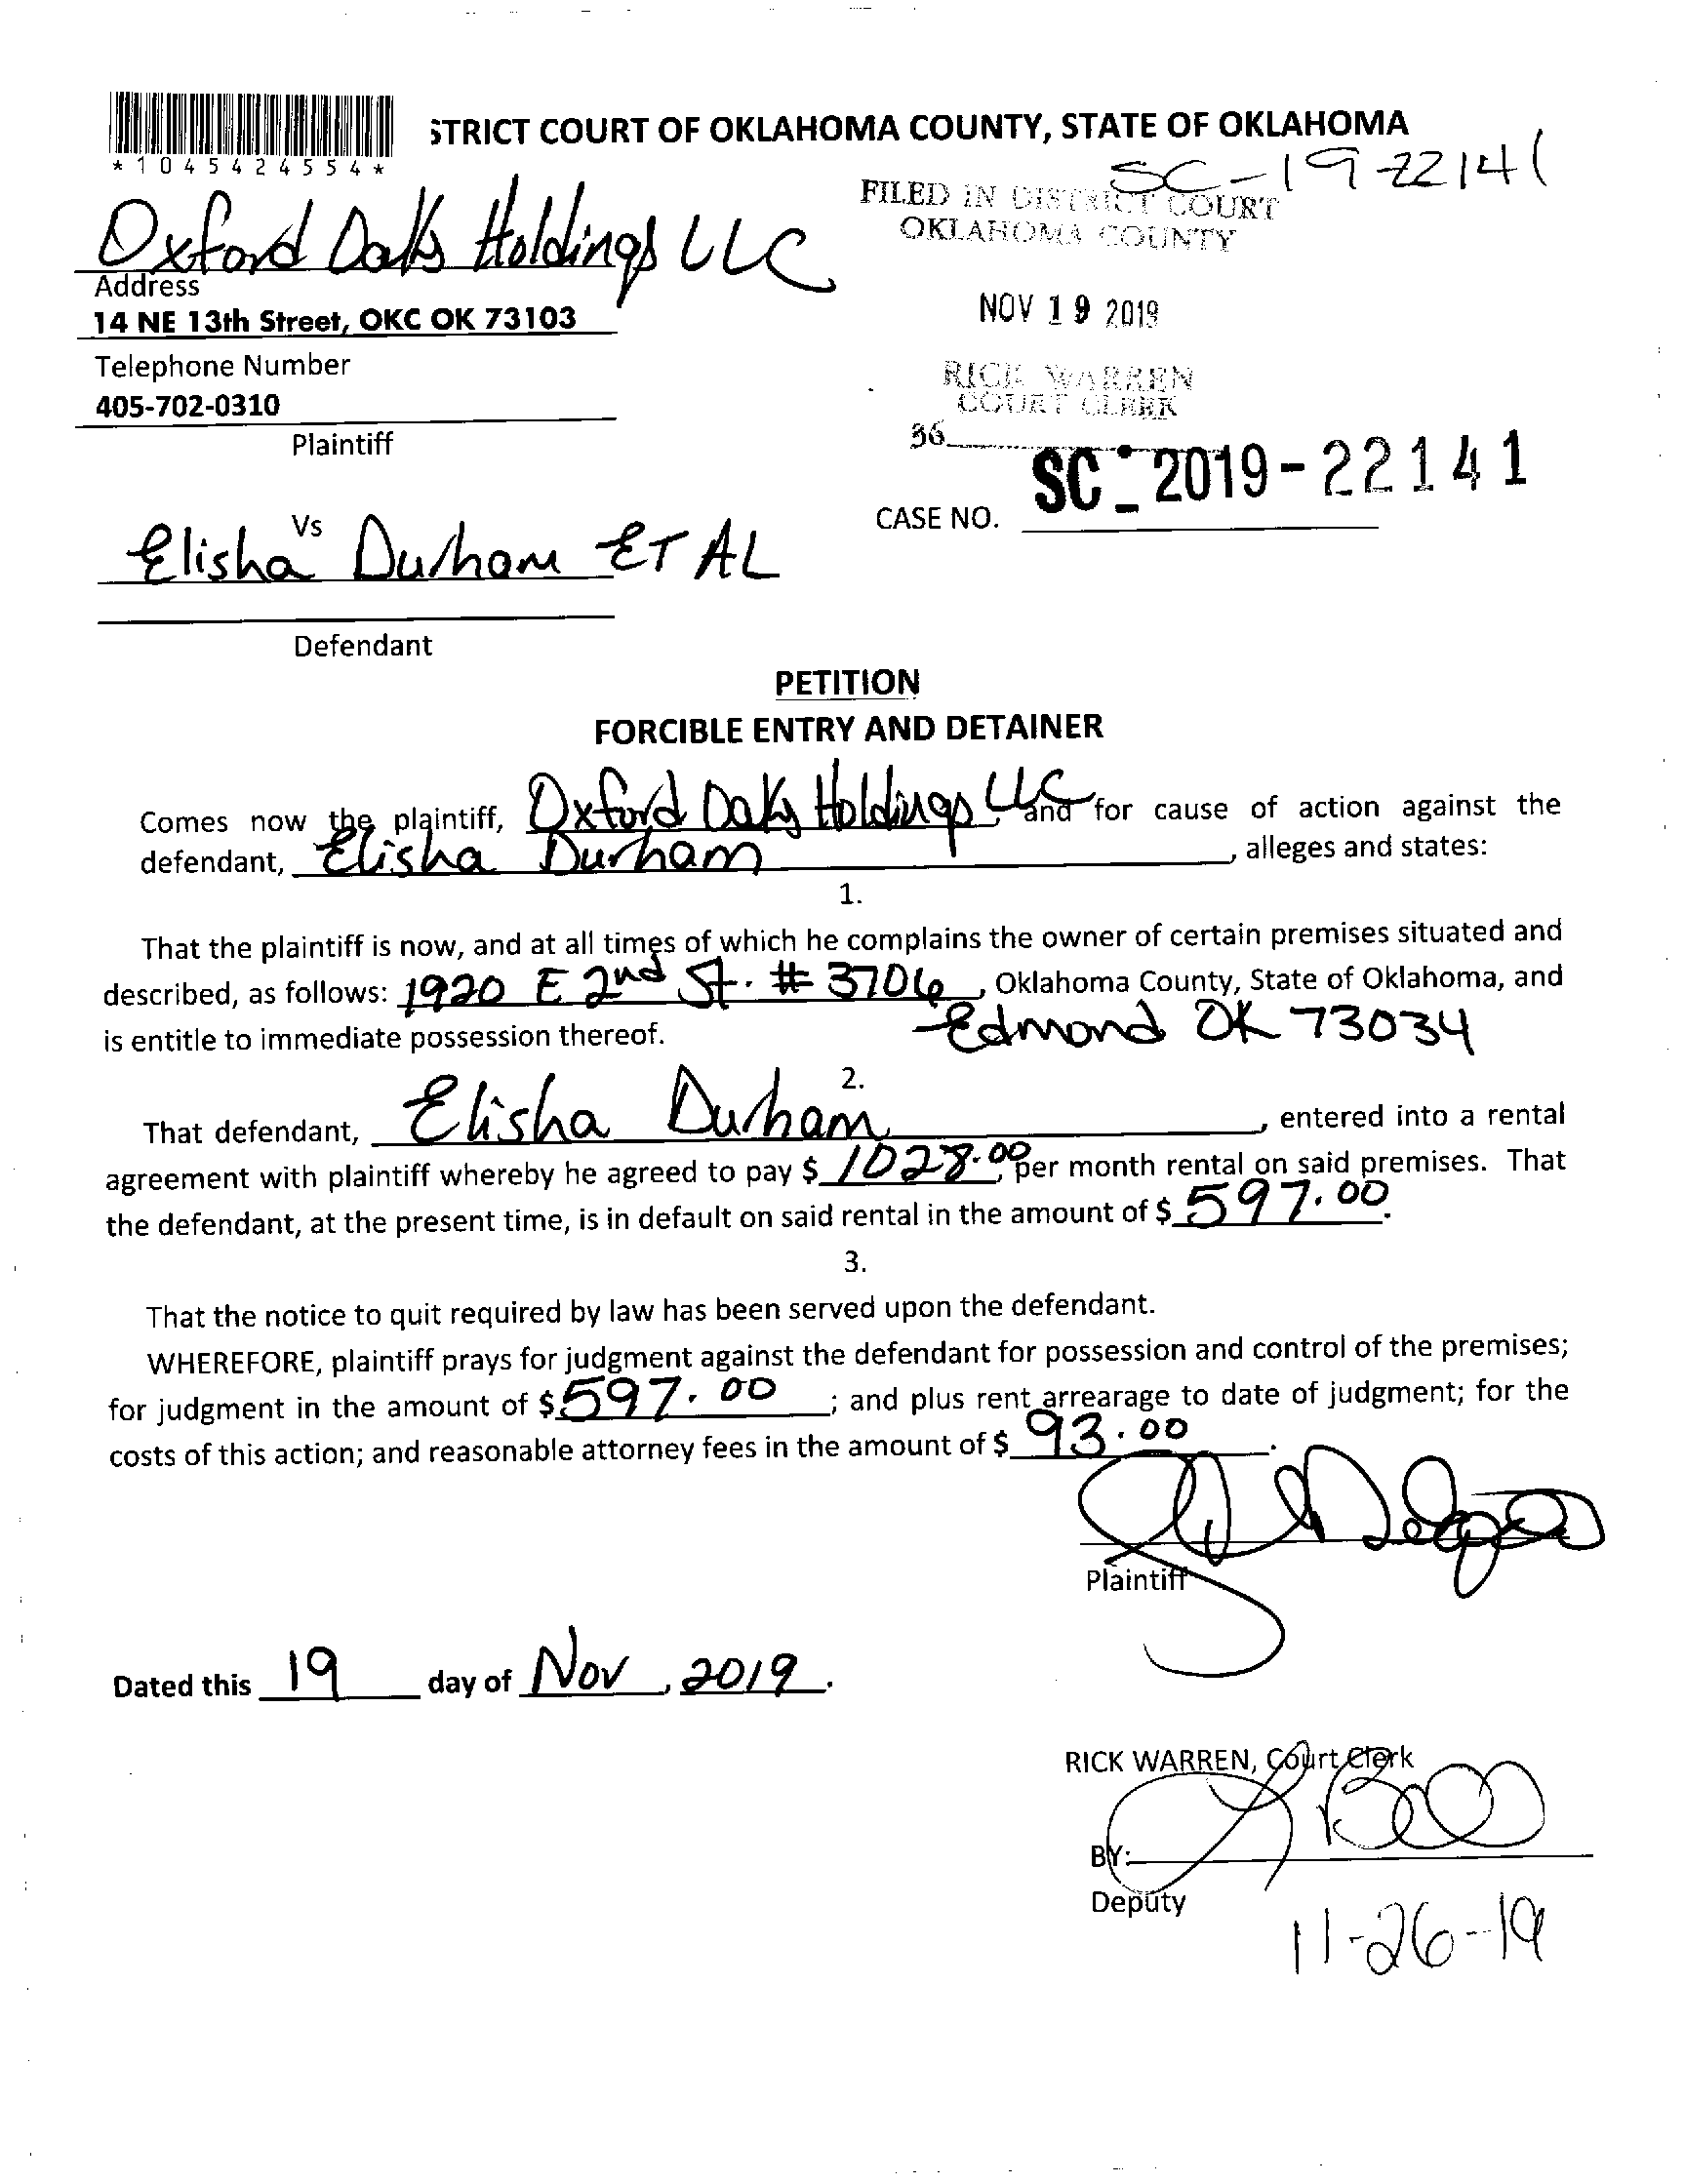 STRICT COURT OF OKLAHOMA COUNTY, STATE OF OKLAHOMA
*1045424554*
SC-19-22141
Oxford Oaks Holdings LLC
FILED IN DISTRICT COURT
OKLAHOMA COUNTY
Address
14 NE 13th Street, OKC OK 73103
NOV 19 2019
Telephone Number
405-702-0310
RICK WARREN
COURT CLERK
Plaintiff
36
SC-2019-22141
CASE NO.
Vs
Elisha Durham ET AL
Defendant
PETITION
FORCIBLE ENTRY AND DETAINER
Comes now the plaintiff, Oxford Oaks Holdings LLC, and for cause of action against the
defendant, Elisha Durham, alleges and states:
1.
That the plaintiff is now, and at all times of which he complains the owner of certain premises situated and
described, as follows: 1920 E 2nd St. # 3706, Oklahoma County, State of Oklahoma, and
is entitle to immediate possession thereof. Edmond OK 73034
2.
That defendant, Elisha Durham, entered into a rental
agreement with plaintiff whereby he agreed to pay $ 1028.00, per month rental on said premises. That
the defendant, at the present time, is in default on said rental in the amount of $ 597.00.
3.
That the notice to quit required by law has been served upon the defendant.
WHEREFORE, plaintiff prays for judgment against the defendant for possession and control of the premises;
for judgment in the amount of $ 597.00; and plus rent arrearage to date of judgment; for the
costs of this action; and reasonable attorney fees in the amount of $ 93.00.
Plaintiff
Dated this 19 day of Nov, 2019.
RICK WARREN, Court Clerk
BY:
Deputy
11-26-19